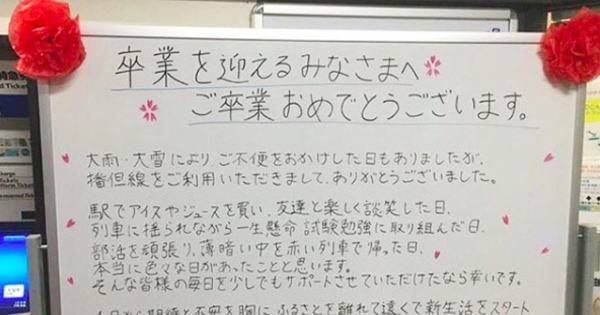 卒業を迎えるみなさまへ
ご卒業おめでとうございます。
大雨・大雪により、ご不便をおかけした日もありましたが、
播但線をご利用いただきまして、ありがとうございました。
駅でアイスやジュースを買い、友達と楽しく談笑した日、
列車に揺られながら一生懸命 試験勉強に取り組んだ日、
部活を頑張り、薄暗い中を赤い列車で帰った日、
本当に色々な日があったことと思います。
そんな皆様の毎日を少しでもサポートさせていただけたなら幸いです。
4月から期待と不安を胸に、ふるさとを離れて遠くで新生活をスタート